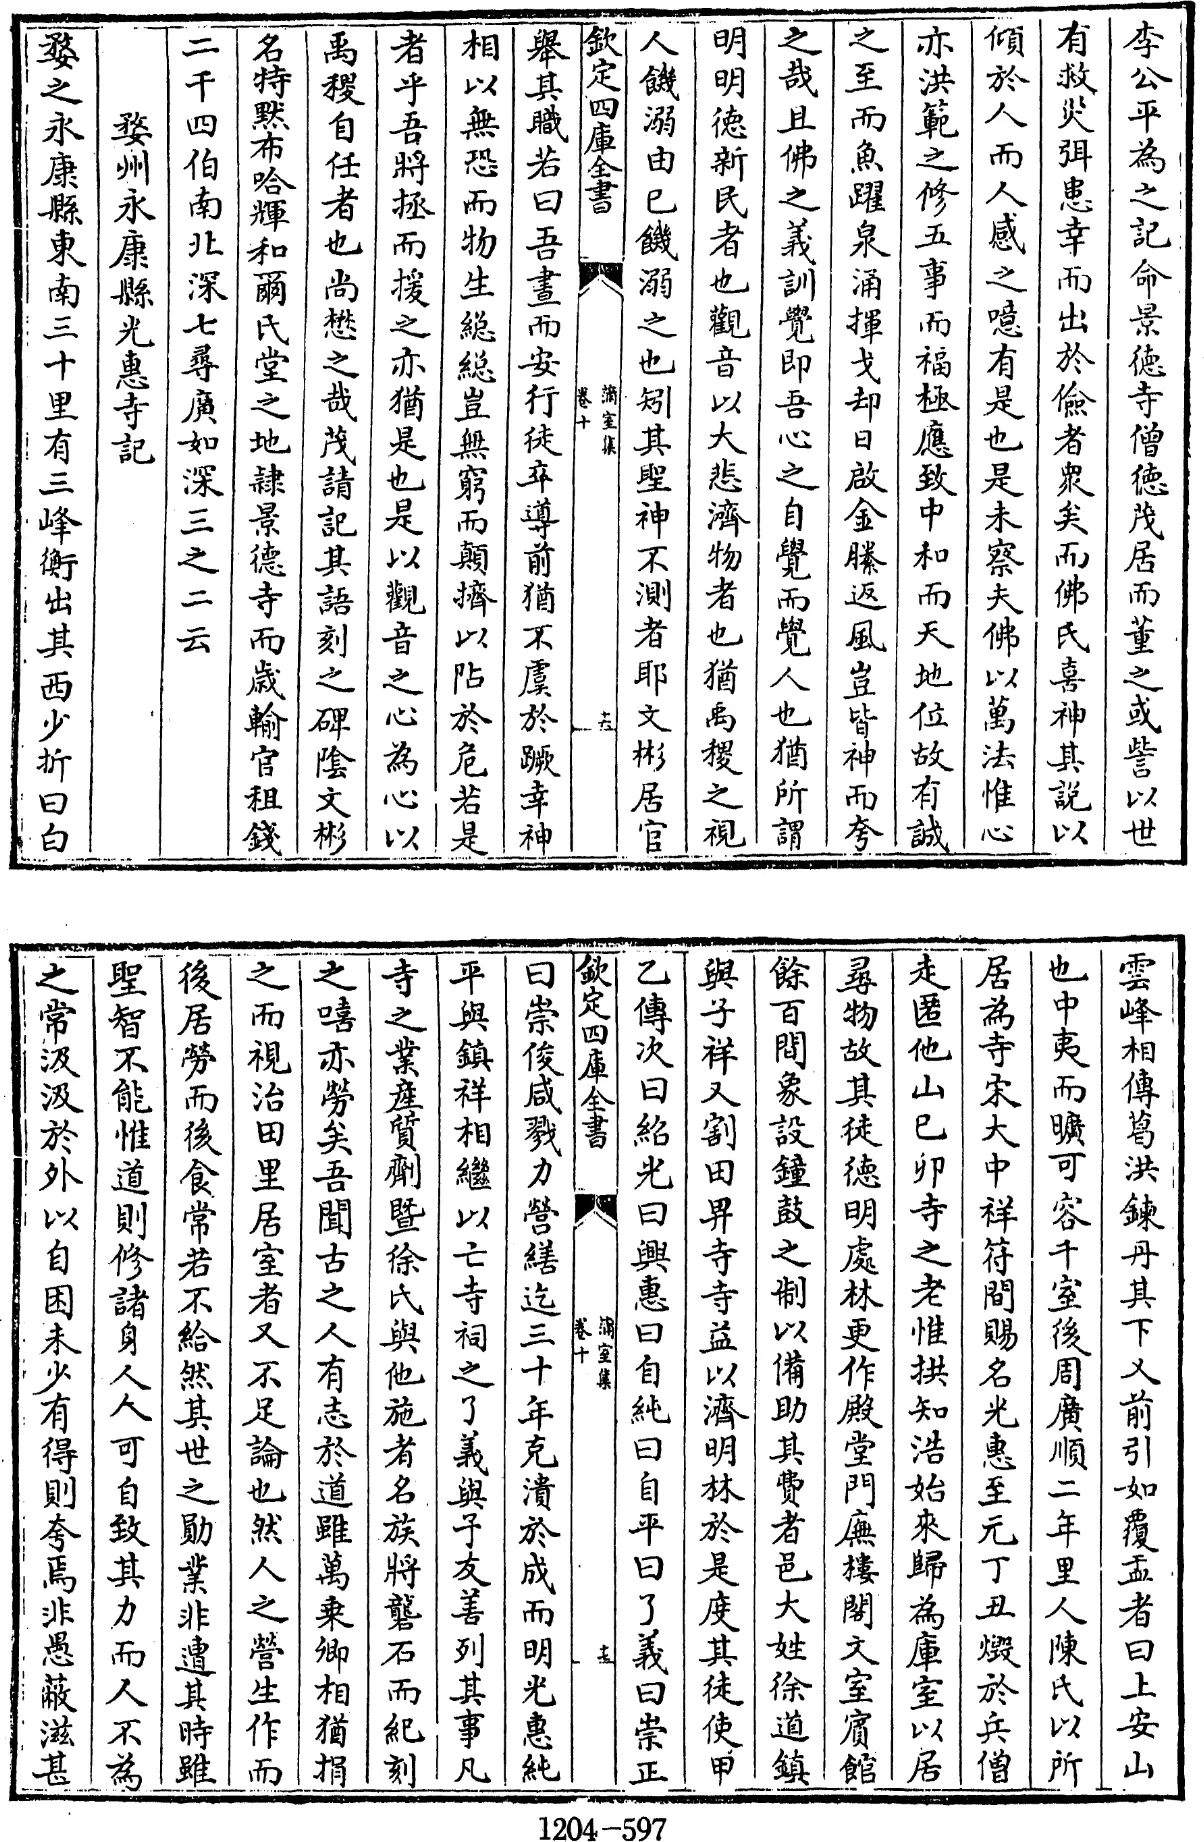 李公平為之記命景德寺僧德茂居而董之或訾以世
有救災弭患幸而出於儉者衆矣而佛氏喜神其説以
傾於人而人感之噫有是也是未察夫佛以萬法惟心
亦洪範之修五事而福極應致中和而天地位故有誠
之至而魚躍泉涌揮戈却日啟金縢返風豈皆神而夸
之哉且佛之義訓覺即吾心之自覺而覺人也猶所謂
明明徳新民者也觀音以大悲濟物者也猶禹稷之視
人饑溺由已饑溺之也矧其聖神不測者耶文彬居官
欽定四庫全書
滴室集
卷十
十六
舉其職若曰吾晝而安行徒卒導前猶不虞於蹶幸神
相以無恐而物生緫緫豈無窮而顛擠以阽於危若是
者乎吾將拯而援之亦猶是也是以觀音之心為心以
禹稷自任者也尚懋之哉茂請記其語刻之碑陰文彬
名特黙布哈輝和爾氏堂之地隷景德寺而歲輸官租錢
二千四伯南北深七尋廣如深三之二云
婺州永康縣光惠寺記
婺之永康縣東南三十里有三峰衡出其西少折曰白
雲峰相傳葛洪鍊丹其下又前引如覆盂者曰上安山
也中夷而曠可容千室後周廣順二年里人陳氏以所
居為寺宋大中祥符間賜名光惠至元丁丑燬於兵僧
走匿他山已卯寺之老惟拱知浩始來歸為庫室以居
尋物故其徒德明處林更作殿堂門廡樓閣文室賓館
餘百間象設鐘鼓之制以備助其費者邑大姓徐道鎮
與子祥又割田畀寺寺益以濟明林於是度其徒使甲
乙傳次曰紹光曰興惠曰自純曰自平曰了義曰崇正
欽定四庫全書
滴室集
卷十
十七
曰崇俊咸戮力營繕迄三十年克潰於成而明光惠純
平與鎮祥相繼以亡寺祠之了義與子友善列其事凡
寺之業産質劑暨徐氏與他施者名族將礱石而紀刻
之嘻亦勞矣吾聞古之人有志於道雖萬乘卿相猶捐
之而視治田里居室者又不足論也然人之營生作而
後居勞而後食常若不給然其世之勛業非遭其時雖
聖智不能惟道則修諸身人人可自致其力而人不為
之常汲汲於外以自困未少有得則夸焉非愚蔽滋甚
1204-597